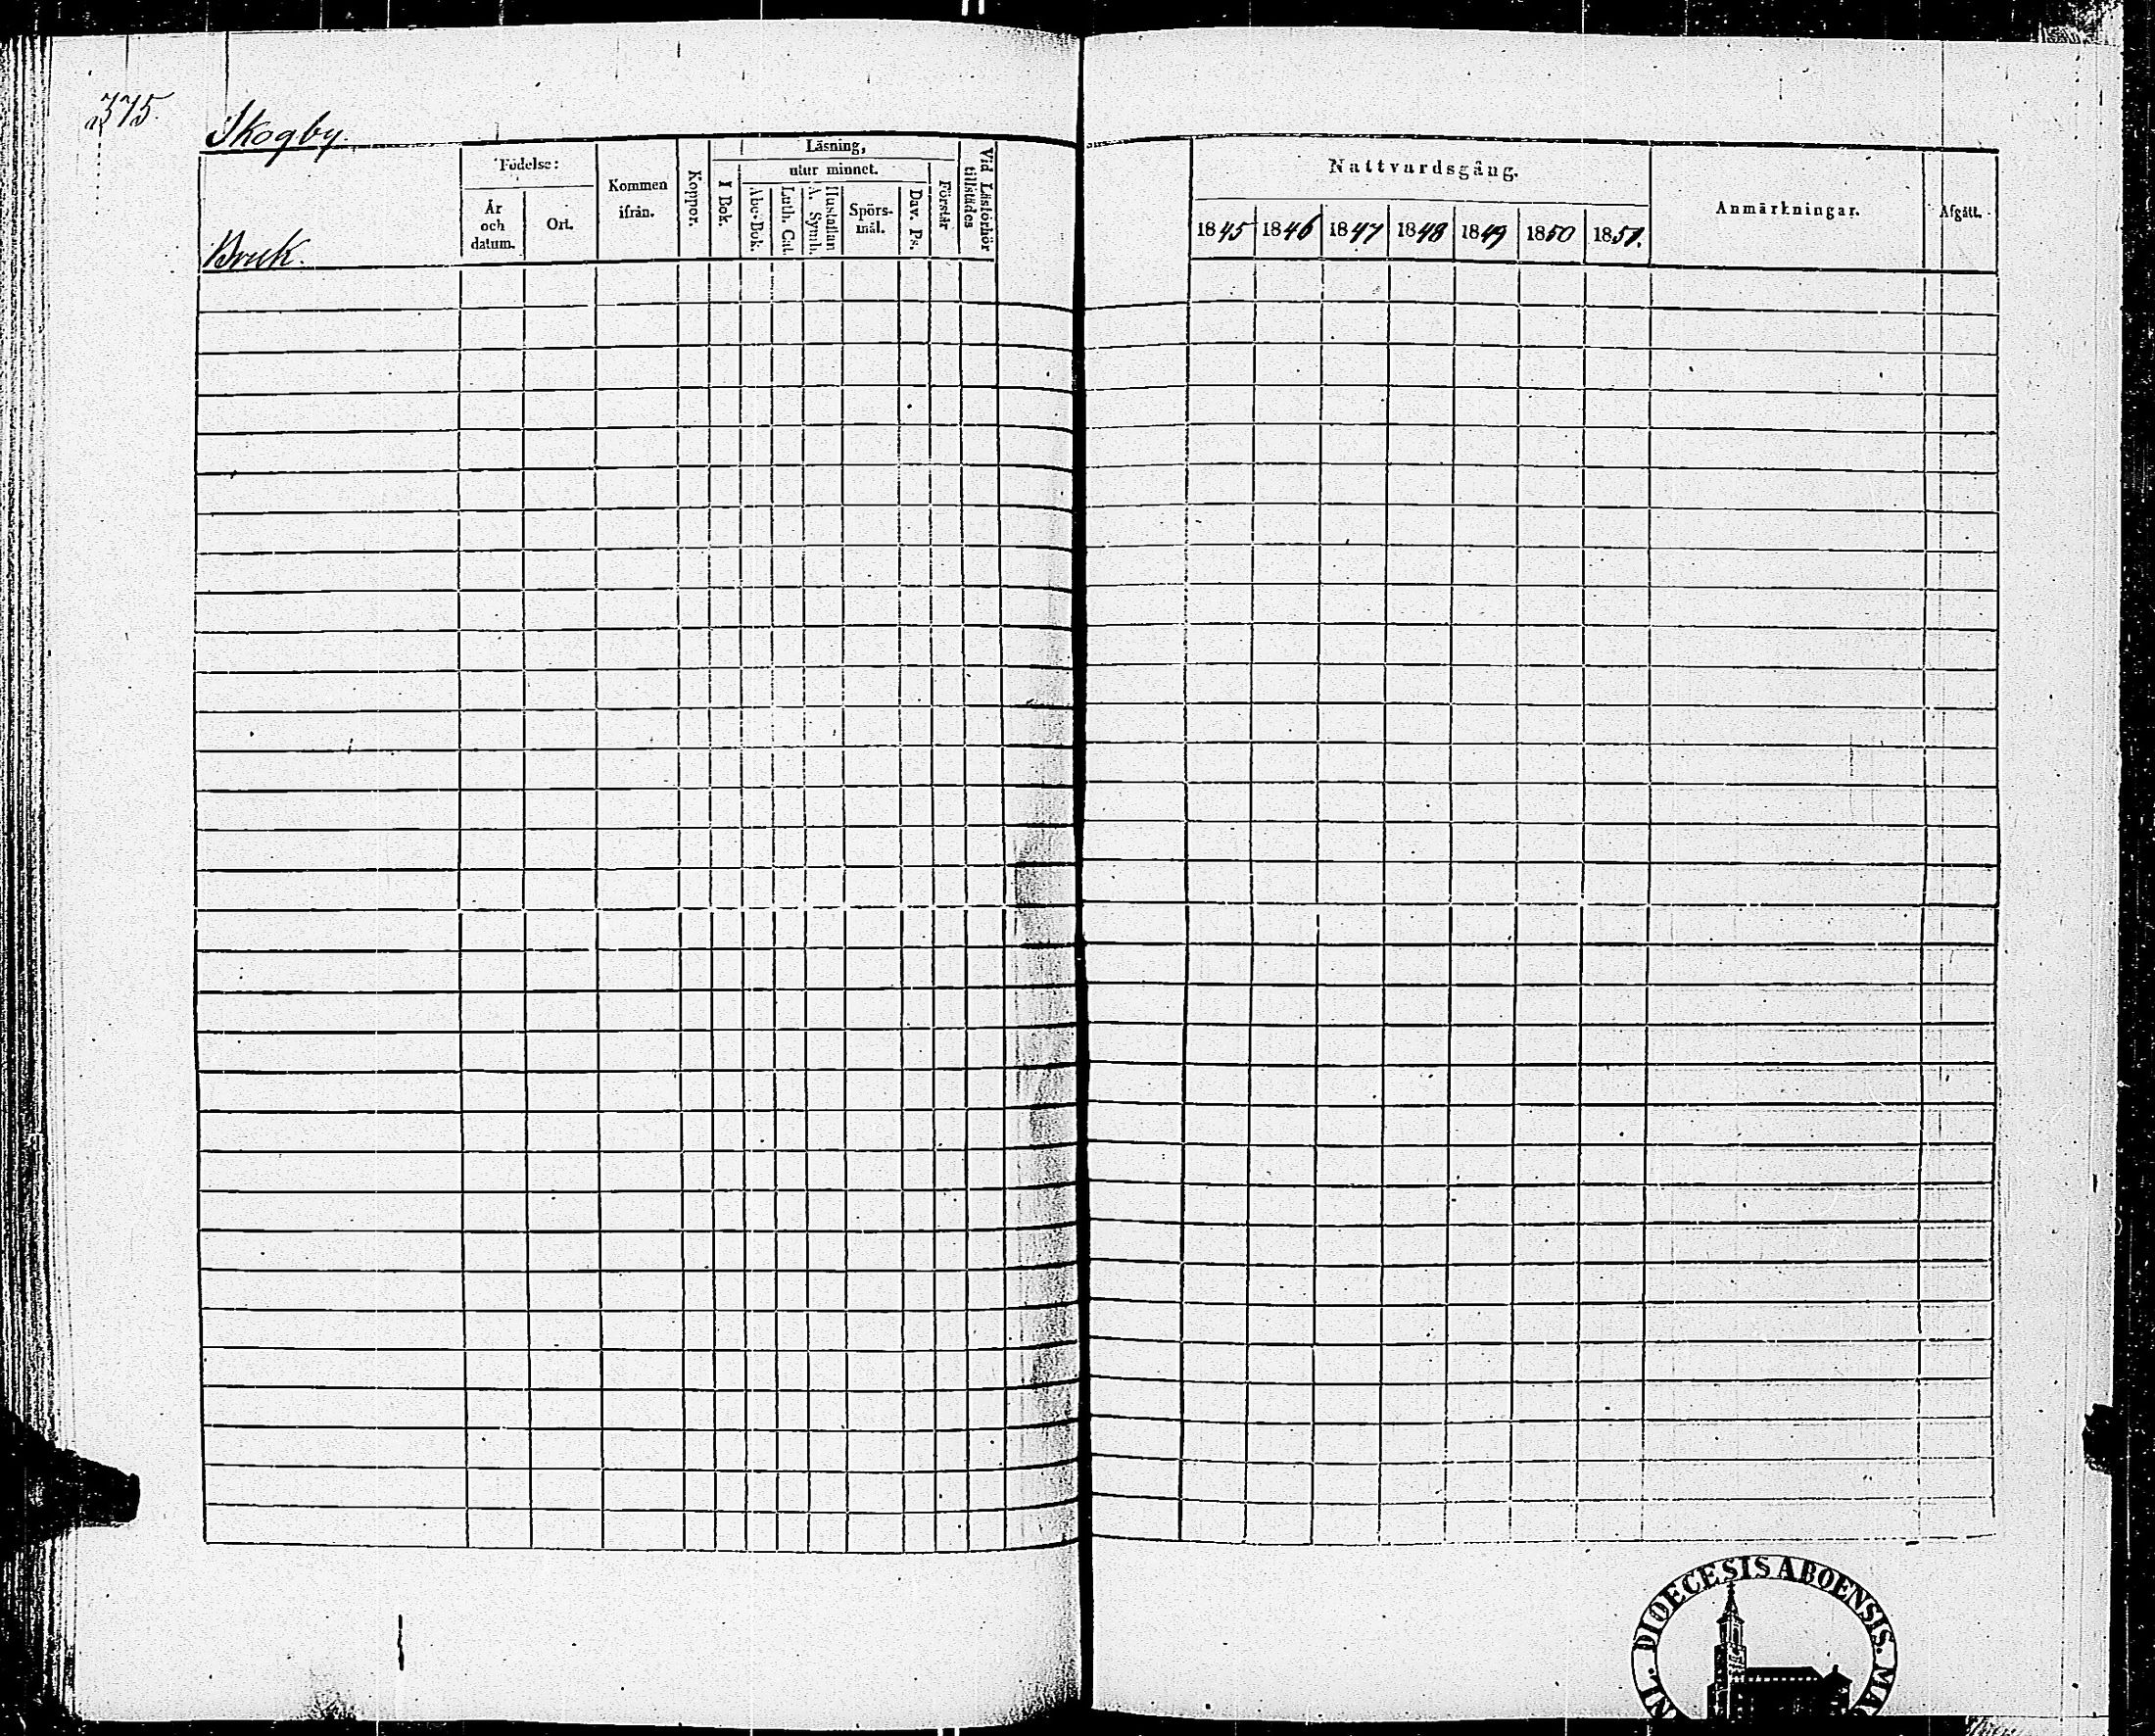 375.
Skogby
Bruk.
Födelse:
År
och
datum.
Ort.
Kommen
ifrån.
Koppor.
Läsning,
I Bok.
utur minnet.
Abc-Bok.
Luth. Cat.
Hustaflan
A. Symb.
Spörs-
mål.
Dav. Ps.
Förstår
Vid Läsförhör
tillstädes
Nattvardsgång.
1845 1846 1847 1848 1849 1850 1851.
Anmärkningar.
Afgått.
DIOECESIS ABOENSIS.